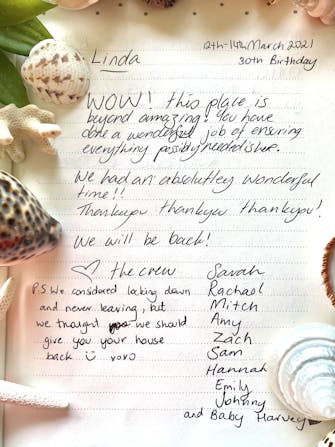 12th-14th March 2021
30th Birthday
Linda
WOW! this place is
beyond amazing! You have
done a wonderful job of ensuring
everything possibly needed is here.
We had an absolutley wonderful
time!!
Thankyou thankyou thankyou!
We will be back!
♡ the crew
P.S We considered locking down
and never leaving, but
we thought we should
give you your house
back ☺ xoxo
Sarah
Rachael
Mitch
Amy
Zach
Sam
Hannah
Emily
Johnny
and Baby Harvey